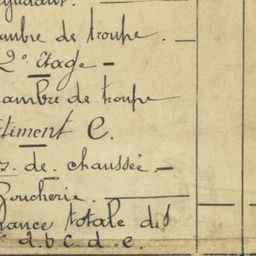 ambre de troupe. _
2° Etage -
ambre de troupe
timent C.
z. de. chaussée -
Boucherie. ___
ance totale des
d. b C. d. e.